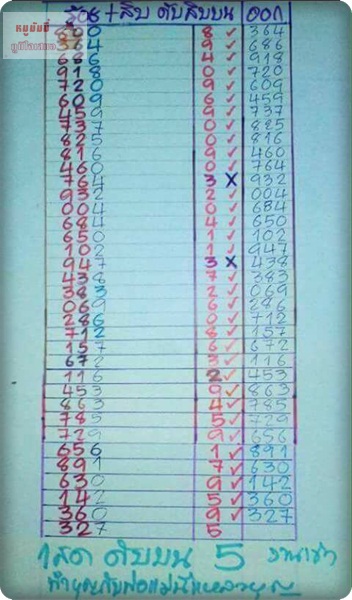 หมูบันดี้
ร้อย + สิบ ดับสิบบน ออก
800 8 ✓ 364
364 9 ✓ 686
686 4 ✓ 918
918 0 ✓ 720
720 9 ✓ 609
609 6 ✓ 459
459 9 ✓ 737
737 0 ✓ 825
825 0 ✓ 816
816 9 ✓ 460
460 0 ✓ 764
764 3 X 932
932 2 ✓ 004
004 0 ✓ 684
684 4 ✓ 650
650 1 ✓ 102
102 1 ✓ 947
947 3 X 438
438 7 ✓ 383
383 2 ✓ 069
069 6 ✓ 286
286 0 ✓ 712
712 8 ✓ 157
157 6 ✓ 672
672 3 ✓ 116
116 2 ✓ 453
453 9 ✓ 863
863 4 ✓ 785
785 5 ✓ 729
729 9 ✓ 656
656 1 ✓ 891
891 7 ✓ 630
630 9 ✓ 142
142 5 ✓ 360
360 9 ✓ 327
327 5
ดับบน 5